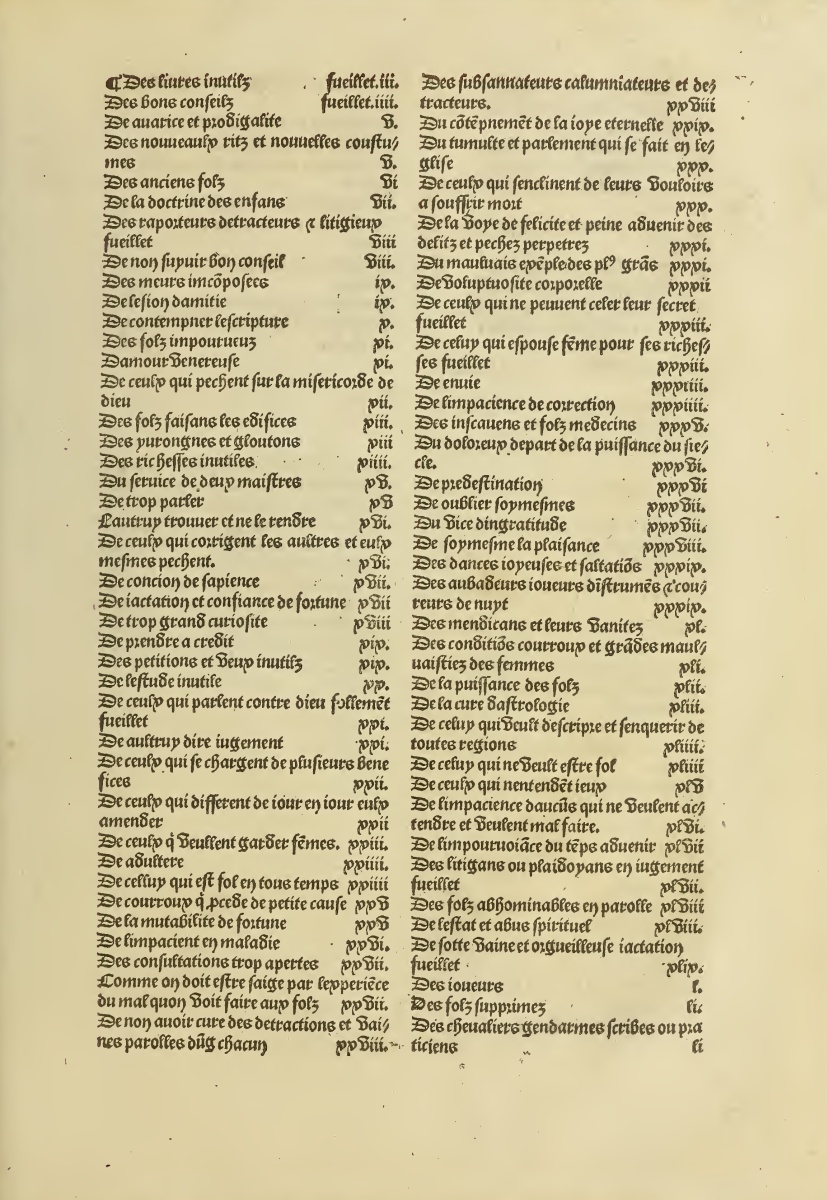 ¶ Des liures inutilz fueillet.iii.
Des bons conseilz fueillet.iiii.
De auarice et prodigalite v.
Des nouueaulx ritz et nouuelles coustu/
mes v.
Des anciens folz vi
De la doctrine des enfans vii.
Des raporteurs detracteurs & litigieux
fueillet viii
De non suyuir bon conseil viii.
Des meurs incõposees ix.
De lesion damitie ix.
De contempner lescripture x.
Des folz impourueuz xi.
Damour venereuse xi.
De ceulx qui pechent sur la misericorde de
dieu xii.
Des folz faisans les edifices xiii.
Des yurongnes et gloutons xiii
Des richesses inutiles. xiiii.
Du seruice de deux maistres xv.
De trop parler xv
Lautruy trouuer et ne le rendre xvi.
De ceulx qui corrigent les aultres et eulx
mesmes pechent. xvi.
De concion de sapience xvii.
De iactation et confiance de fortune xvii
De trop grand curiosite xviii
De prendre a credit xix.
Des petitions et veux inutilz xix.
De lestude inutile xx.
De ceulx qui parlent contre dieu follemẽt
fueillet xxi.
De aultruy dire iugement xxi.
De ceulx qui se chargent de plusieurs bene
fices xxii.
De ceulx qui different de iour en iour eulx
amender xxii
De ceulx q̃ veullent garder fẽmes. xxiii.
De adultere xxiiii.
De celluy qui est fol en tous temps xxiiii
De courroux q̃ ꝓcede de petite cause xxv
De la mutabilite de fortune xxv
De limpacient en maladie xxvi.
Des consultations trop apertes xxvii.
Comme on doit estre saige par lexperiẽce
du mal quon voit faire aux folz xxvii.
De non auoir cure des detractions et vai/
nes parolles dũg chacun xxviii.
Des subsannateurs calumniateurs et de/
tracteurs. xxviii
Du cõtẽpnemẽt de la ioye eternelle xxix.
Du tumulte et parlement qui se fait en le/
glise xxx.
De ceulx qui senclinent de leurs vouloirs
a souffrir mort xxx.
De la voye de felicite et peine aduenir des
delitz et pechez perpetrez xxxi.
Du mauluais exẽple des plꝰ grãs xxxi.
De voluptuosite corporelle xxxii
De ceulx qui ne peuuent celer leur secret
fueillet xxxiii.
De celuy qui espouse fẽme pour ses riches/
ses fueillet xxxiii.
De enuie xxxiiii.
De limpacience de correction xxxiiii.
Des inscauens et folz medecins xxxv.
Du doloreux depart de la puissance du sie/
cle. xxxvi.
De predestination xxxvi
De oublier soymesmes xxxvii.
Du vice dingratitude xxxvii.
De soymesme la plaisance xxxviii.
Des dances ioyeuses et saltatiõs xxxix.
Des aubadeurs ioueurs dĩstrumẽs & cou/
reurs de nuyt xxxix.
Des mendicans et leurs vanitez xl.
Des conditiõs courroux et grãdes maul/
uaistiez des femmes xli.
De la puissance des folz xlii.
De la cure dastrologie xliii.
De celuy qui veult descripre et senquerir de
toutes regions xliiii.
De celuy qui ne veult estre fol xliiii
De ceulx qui nentendẽt ieux xlv
De limpacience daucũs qui ne veulent ac/
tendre et veulent mal faire. xlvi.
De limpouruoiãce du tẽps aduenir xlvii
Des litigans ou plaidoyans en iugement
fueillet xlvii.
Des folz abhominables en parolle xlviii
De lestat et abus spirituel xlviii.
De sotte vaine et orgueilleuse iactation
fueillet xlix.
Des ioueurs l.
Des folz supprimez li.
Des cheualiers gendarmes scribes ou pra
ticiens li